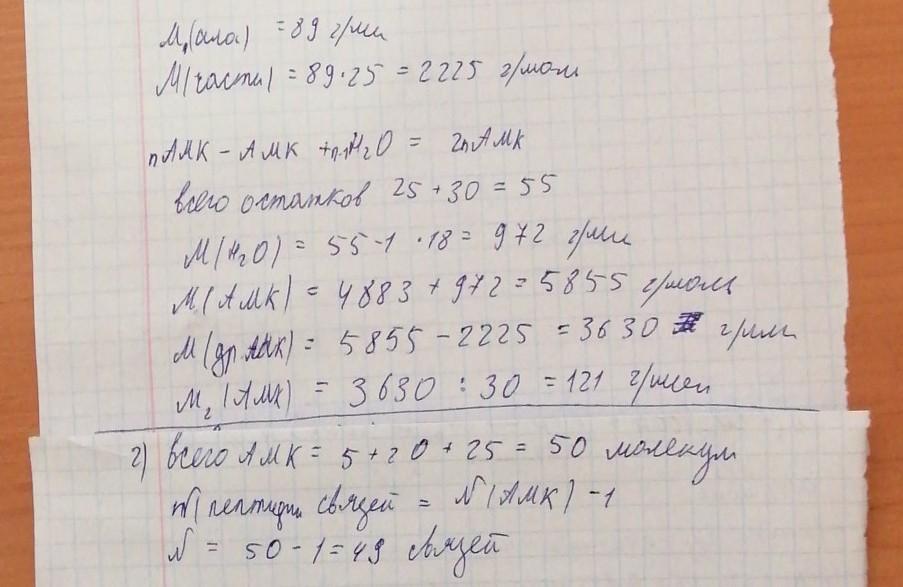 M₁(ала) = 89 г/мл
M(части) = 89·25 = 2225 г/мол
nАМК - АМК + n-1H₂O = 2nАМК
всего остатков 25 + 30 = 55
M(H₂O) = 55-1 ·18 = 972 г/мл
M(АМК) = 4883 + 972 = 5855 г/моль
M(др. АМК) = 5855 - 2225 = 3630 г/мл
M₂(АМК) = 3630 : 30 = 121 г/мол
2) всего АМК = 5 + 20 + 25 = 50 молекул
N(пептидн связей = N(АМК) - 1
N = 50 - 1 = 49 связей